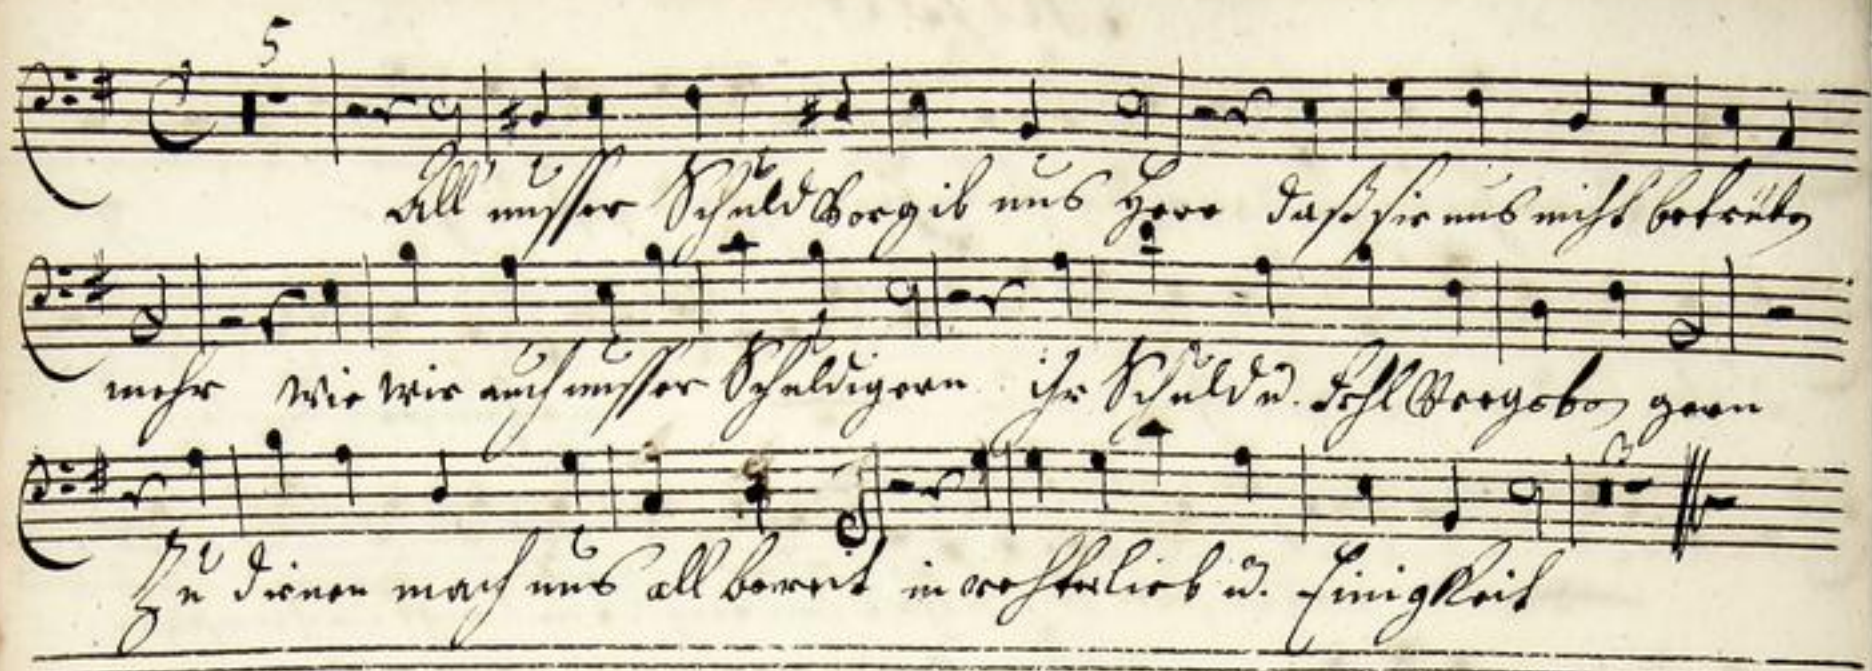 5
All unsser Schuld Vergib uns Herr daß sie uns nicht betrüben
mehr Wie wir auch unsser Schuldigern ihr Schuld u. Fehl Vergeben gern
Zu dienen mach uns all bereit in rechter lieb u. Einigkeit